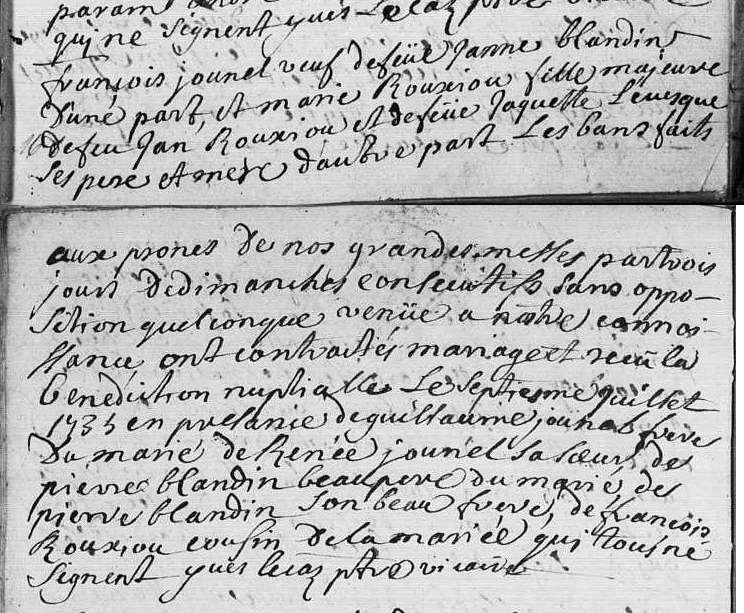 qui ne signent yves Lecaz ptre
françois jounel veuf defeüe Janne blandin
d'une part, et marie Rouxiou fille majeure
defeu Jan Rouxiou et defeüe Jaquette Levesque
ses pere et mere d'autre part Les bans faits
aux prones De nos grandes messes partrois
jours dedimanches consecutifs sans oppo-
sition quelconque venüe a nôtre connoi-
ssance ont contractés mariage et recu la
Benediction nuptialle Le septieme juillet
1735 en presance deguillaume jounel frere
Du marié de Renée jounel sa sœur, de
pierre blandin beaupere du marié, de
pierre blandin son beau frere, de françois
Rouxiou cousin De la mariée qui tous ne
signent yves lecaz ptre vicaire